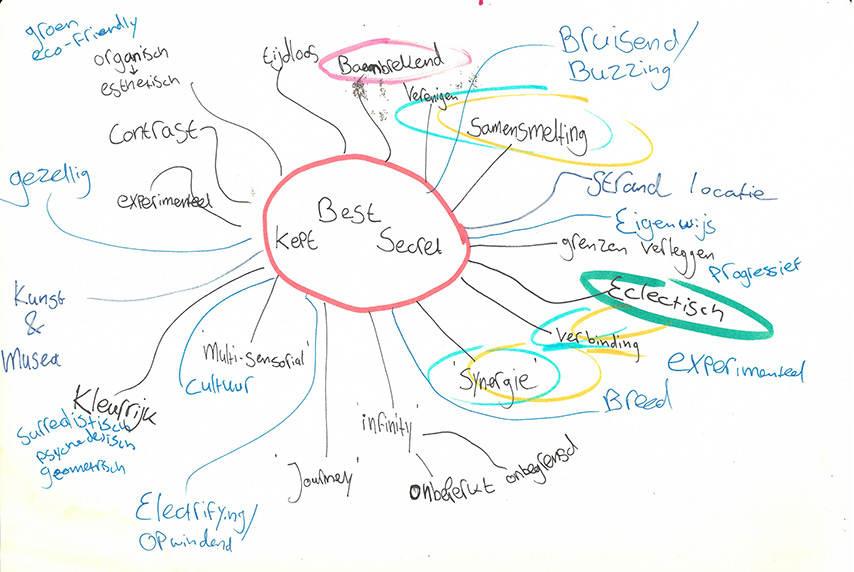 groen
eco-Friendly
organisch
esthetisch
tijdloos
Baanbrekend
Verenigen
Bruisend/
Buzzing
Samensmelting
Contrast
gezellig
experimenteel
Best
Kept Secret
Strand locatie
Eigenwijs
grenzen verleggen
progressief
Eclectisch
Verbinding
experimenteel
'Synergie'
Breed
Kunst
&
Musea
'Multi-sensorial'
Cultuur
Kleurrijk
Surrealistisch
psychedelisch
geometrisch
'infinity'
'Journey'
onbeperkt onbegrensd
Electrifying/
Opwindend